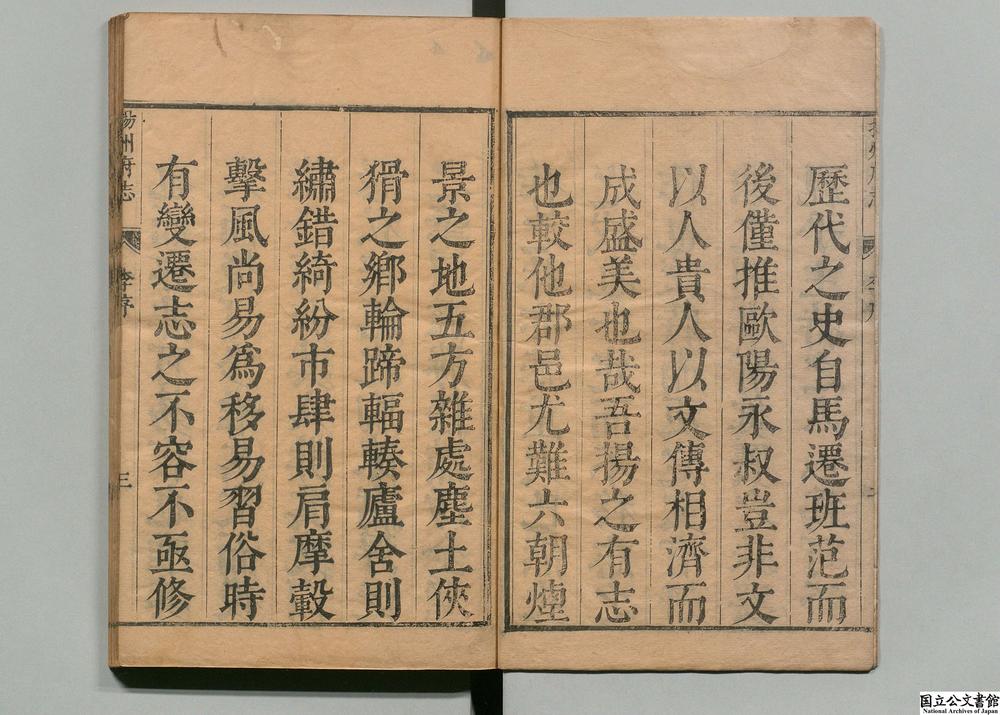 歷代之史自馬遷班范而
後僅推歐陽永叔豈非文
以人貴人以文傳相濟而
成盛美也哉吾揚之有志
也較他郡邑尤難六朝煙
景之地五方雜處塵土俠
猾之鄉輪蹄輻輳廬舍則
繡錯綺紛市肆則肩摩轂
擊風尚易為移易習俗時
有變遷志之不容不亟修
揚州府志
李序
三
国立公文書館
National Archives of Japan